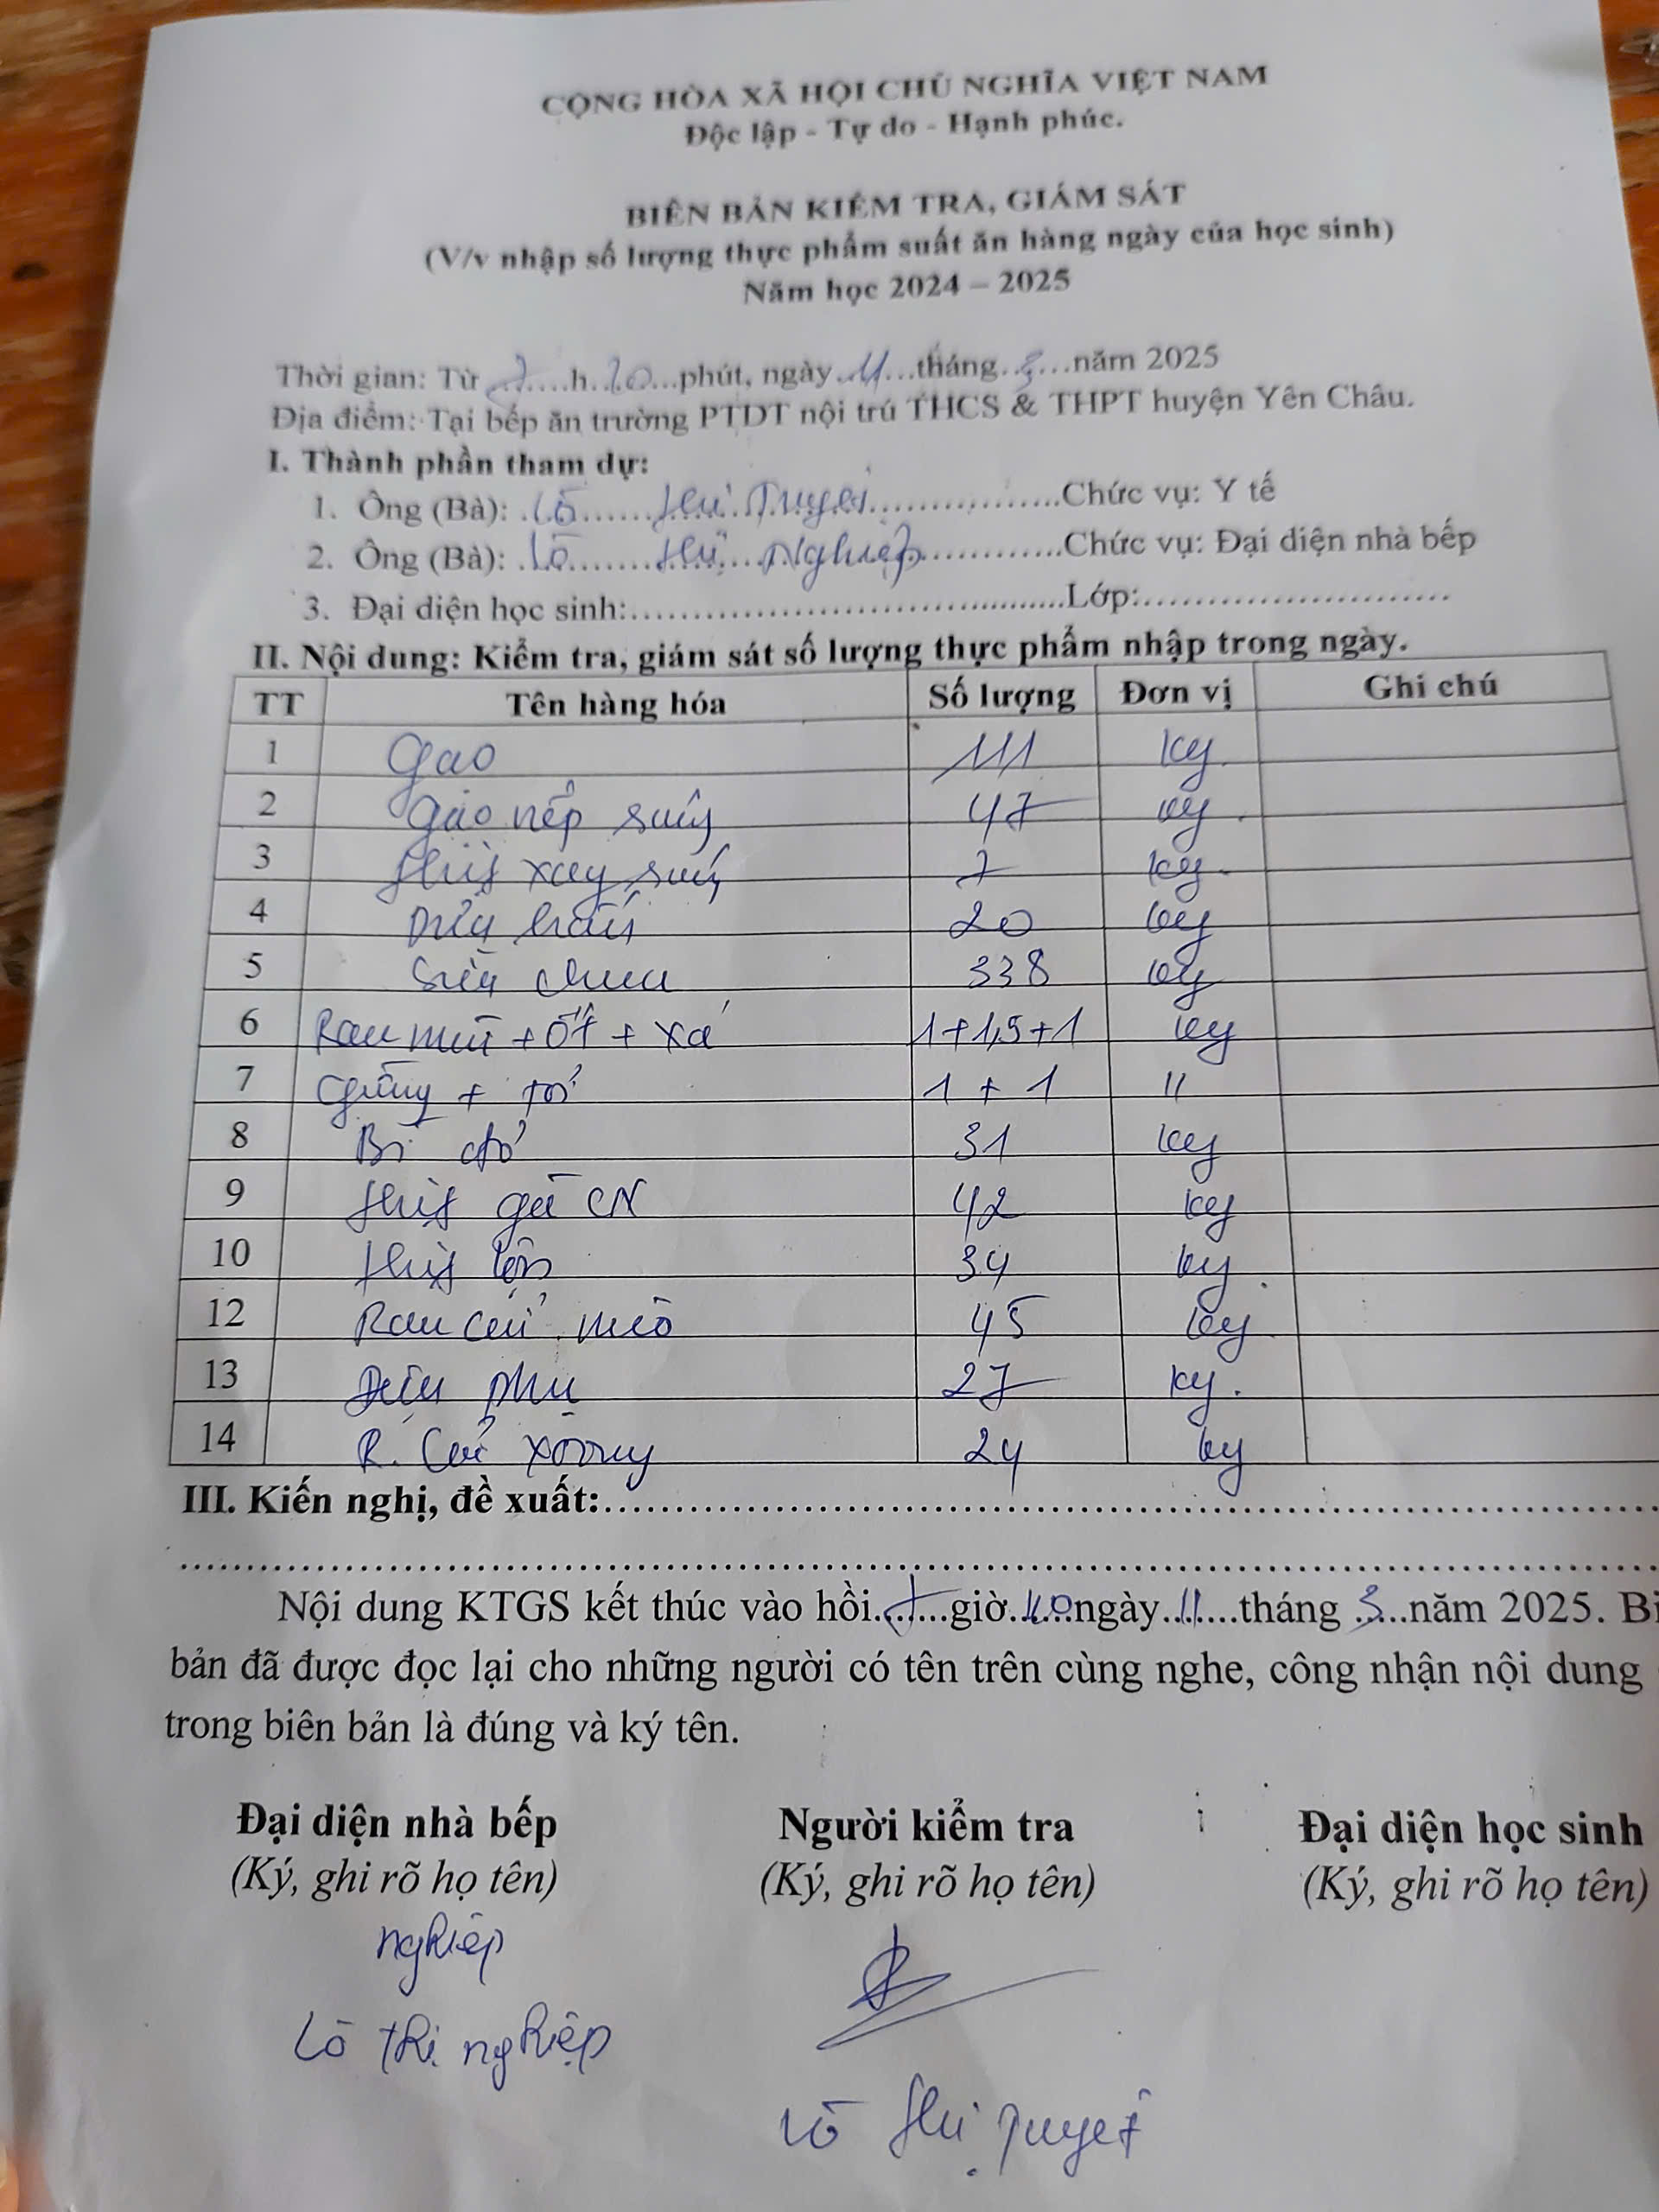 CỘNG HÒA XÃ HỘI CHỦ NGHĨA VIỆT NAM
Độc lập - Tự do - Hạnh phúc.
BIÊN BẢN KIỂM TRA, GIÁM SÁT
(V/v nhập số lượng thực phẩm suất ăn hàng ngày của học sinh)
Năm học 2024 – 2025
Thời gian: Từ 7 h 20 phút, ngày 11 tháng 3 năm 2025
Địa điểm: Tại bếp ăn trường PTDT nội trú THCS & THPT huyện Yên Châu.
I. Thành phần tham dự:
1. Ông (Bà): Lò Thị Tuyết Chức vụ: Y tế
2. Ông (Bà): Lò Thị Nghiệp Chức vụ: Đại diện nhà bếp
3. Đại diện học sinh: Lớp:
II. Nội dung: Kiểm tra, giám sát số lượng thực phẩm nhập trong ngày.
TT Tên hàng hóa Số lượng Đơn vị Ghi chú
1 Gạo 111 kg
2 Gạo nếp sáng 47 kg
3 Thịt xay sáng 7 kg
4 20 kg
5 Sữa chua 338
6 Rau mùi + ớt + xả 1+1,5+1 kg
7 Gừng + tỏi 1 + 1 "
8 Bí đỏ 31 kg
9 Thịt gà CN 42 kg
10 Thịt lợn 34 kg
12 Rau cải mèo 45 kg
13 Đậu phụ 27 kg.
14 R. Cải xoong 24 kg
III. Kiến nghị, đề xuất:
Nội dung KTGS kết thúc vào hồi 7 giờ 40 ngày 11 tháng 3 năm 2025.
bản đã được đọc lại cho những người có tên trên cùng nghe, công nhận nội dung
trong biên bản là đúng và ký tên.
Đại diện nhà bếp Người kiểm tra Đại diện học sinh
(Ký, ghi rõ họ tên) (Ký, ghi rõ họ tên) (Ký, ghi rõ họ tên)
nghiệp
Lò thị nghiệp
Lò Thị Tuyết